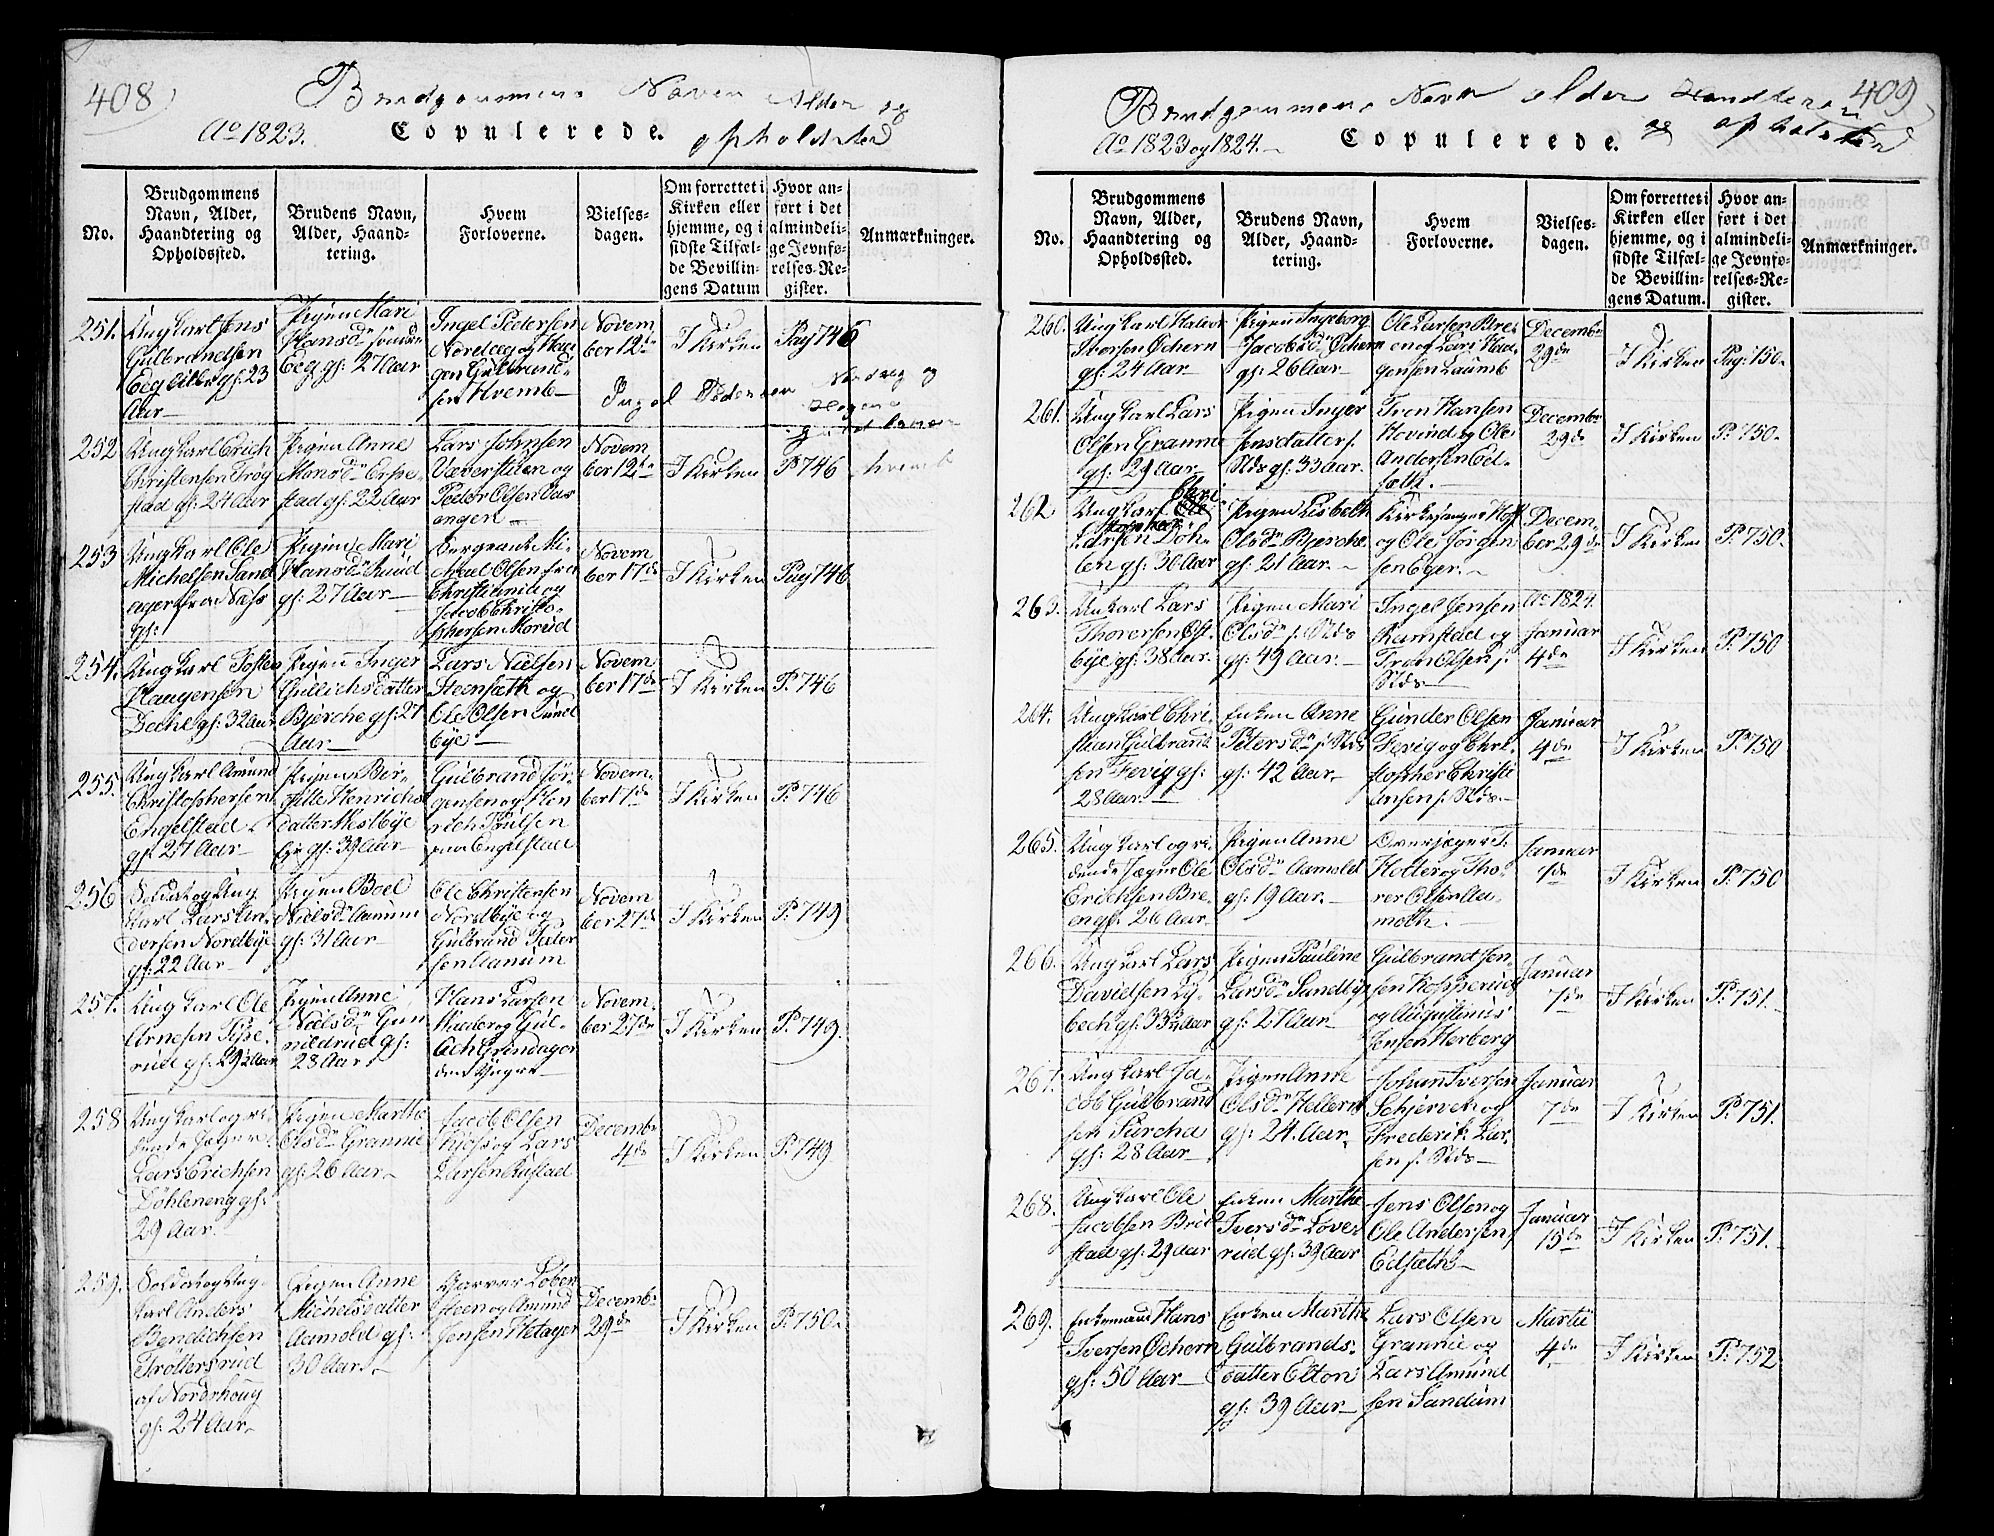 408
Brudgommens Navn Alder og
Ao 1823. Copulerede. opholdsted
No.
Brudgommens Navn, Alder, Haandtering og Opholdssted.
Brudens Navn, Alder, Haandtering.
Hvem Forloverne.
Vielsesdagen.
Om forrettet i Kirken eller hjemme, og i sidste Tilfælde Bevillingens Datum
Hvor anført i det almindelige Jevnførelses-Register.
Anmærkninger.
251.
Ungkarl Jens
Gulbrandsen
Eeg gf: 23
Aar
Pigen Mari
Hansdr
Eeg gf: 27 Aar
Ingel Pedersen
Nordeeg og Haa
gen Gulbrand-
sen Hvemb
Novem
ber 12te
I Kirken
Pag 746
Ingel Pedersen Nordeeg og
Hogen
hvemb
252
Ungkarl Erich
Christensen Trøg
stad gf: 24 Aar
Pigen Anne
Hansdr Espe-
stad gf: 22 Aar
Lars Johnsen
Væverstuen og
Peder Olsen Var
angen
Novem
ber 12te
I Kirken
P 746
253
Ungkarl Ole
Michelsen Sand
ager fra Næss
gf:
Pigen Mari
Hansdr Ruud
gf: 27 Aar
Sergeant Mi-
chael Olsen fra
Christiania og
Jacob Christo-
phersen Morud
Novem
ber 17de
I Kirken
Pag 746
254.
Ungkarl Josten
Haagensen
Dechl gf: 32 Aar
Pigen Inger
Gullichsdatter
Bjerche gf: 21
Aar
Lars Nielsen
Steensæth og
Ole Olsen Lund
bye
Novem
ber 17de
I Kirken
P: 746
255.
Ungkarl Amund
Christophersen
Engelstad
gf: 27 Aar
Pigen Bir-
gitte Henrichs
datter Hestbye
gf: 39 Aar
Gulbrand Jør-
gensen og Hen
rich Poulsen
paa Engelstad
Novem-
ber 17de
I Kirken
P: 746
256
Soldat og Ung
karl Lars An-
dersen Nordbye
gf: 22 Aar
Pigen Boel
Nielsdr Aanum
gf: 31 Aar
Ole Christensen
Nordbye og
Gulbrand Peder
sen Aanum
Novem
ber 27de
I Kirken
P: 749
257.
Ungkarl Ole
Arnesen Pisse-
rud gf: 29½ Aar
Pigen Anne
Nielsdr Gun
nildrud gf:
28 Aar
Hans Larsen
Huuer og Gul-
ach Grindager
den Yngre
Novem-
ber 27de
I Kirken
P: 749.
258
Ungkarl og ri-
dende Jæger
Lars Erichsen
Døhleneng gf:
29 Aar
Pigen Marthe
Olsdr Grannie
gf: 26 Aar
Jacob Olsen
Kjos og Lars
Larsen Rustad
Decembr
4de
I Kirken
P: 749
259.
Soldat og Ung-
karl Anders
Bendichsen
Trottersrud
af Nordrhoug
gf: 24 Aar
Pigen Anne
Michelsdatter
Aamold gf:
30 Aar
Garver Løben
steen og Amund
Jensen Hetager
Decembr
29de
I Kirken
P: 750.
409
Brudgommens Navn alder Handtering
og opholdsted
Ao 1823 og 1824. Copulerede.
No.
Brudgommens Navn, Alder, Haandtering og Opholdssted.
Brudens Navn, Alder, Haandtering.
Hvem Forloverne.
Vielsesdagen.
Om forrettet i Kirken eller hjemme, og i sidste Tilfælde Bevillingens Datum.
Hvor anført i det almindelige Jevnførelses-Register.
Anmærkninger.
260.
Ungkarl Halvor
Iversen Ochern
gf: 24 Aar
Pigen Ingeborg
Jacobsdr Ochern
gf: 26 Aar
Ole Larsen Bre-
en og Lars Haa-
gensen Laumb
Decembr
29de
I Kirken
Pag: 750.
261.
Ungkarl Lars
Olsen Grannie
gf: 29 Aar
Pigen Inger
Jensdatter s:
Stds gf: 33 Aar
Iven Hansen
Hovind og Ole
Andersen Ed-
sæth.
Decembr
29de
I Kirken
P: 750.
262
Ungkarl Chri
stopher
Larsen Døh-
len gf: 30 Aar
Pigen Lisbeth
Olsdr Bjerche
gf: 21 Aar
Kirkesanger Hoff
og Ole Jørgen
sen Eger.
Decem-
ber 29de
I Kirken
P: 750.
263.
Unkarl Lars
Thoversen Øst-
bye gf: 38 Aar.
Pigen Mari
Olsdr s: Stds
gf: 49 Aar.
Ingel Jensen
Ramstad og
Iven Olsen s:
Stds
Ao 1824.
Januar
4de
I Kirken
P: 750
264.
Ungkarl Chri-
stian Gulbrand
sen Fevig gf:
28 Aar.
Enken Anne
Petersdr s: Stds
gf: 42 Aar
Gunder Olsen
Fevig og Chri-
stopher Christi
ansen s: Stds.
Januar
4de
I Kirken
P: 750
265.
Ungkarl og ri-
dende Jæger Ole
Erichsen Bre-
en gf: 26 Aar
Pigen Anne
Olsdr Aamold
gf: 19 Aar.
Overjæger T.
Holter og Tho-
rer Olsen Aa-
moth.
Januar
7de
I Kirken
P: 750
266.
Ungkarl Lars
Davidsen Ly-
bech gf: 33¾ Aar
Pigen Pauline
Larsdr Sandlip
gf: 27 Aar
Gulbrand Jen-
sen Kopperud
og Augustinus
Jensen Herberg
Januar
7de
I Kirken
P: 751.
267.
Ungkarl Ja-
cob Gulbrand
sen Furcha
gf: 28 Aar
Pigen Anne
Olsdr Hellerud
gf: 24 Aar
Johan Iversen
Schjerven og
Frederik Lar-
sen s: Stds
Januar
7de
I Kirken
P: 751.
268.
Ungkarl Ole
Jacobsen Bril-
stad gf: 29 Aar
Enken Marthe
Iversdr Løve-
rud gf: 39 Aar
Jens Olsen og
Ole Andersen
Edsæth
Januar
15de
I Kirken
P: 751.
269.
Enkemand Hans
Iversen Ochern
gf: 50 Aar
Enken Marthe
Gulbrands-
datter Elton
gf: 39 Aar
Lars Olsen
Grannie og
Lars Amund
sen Sandum
Martii
4de
I Kirken
P: 752